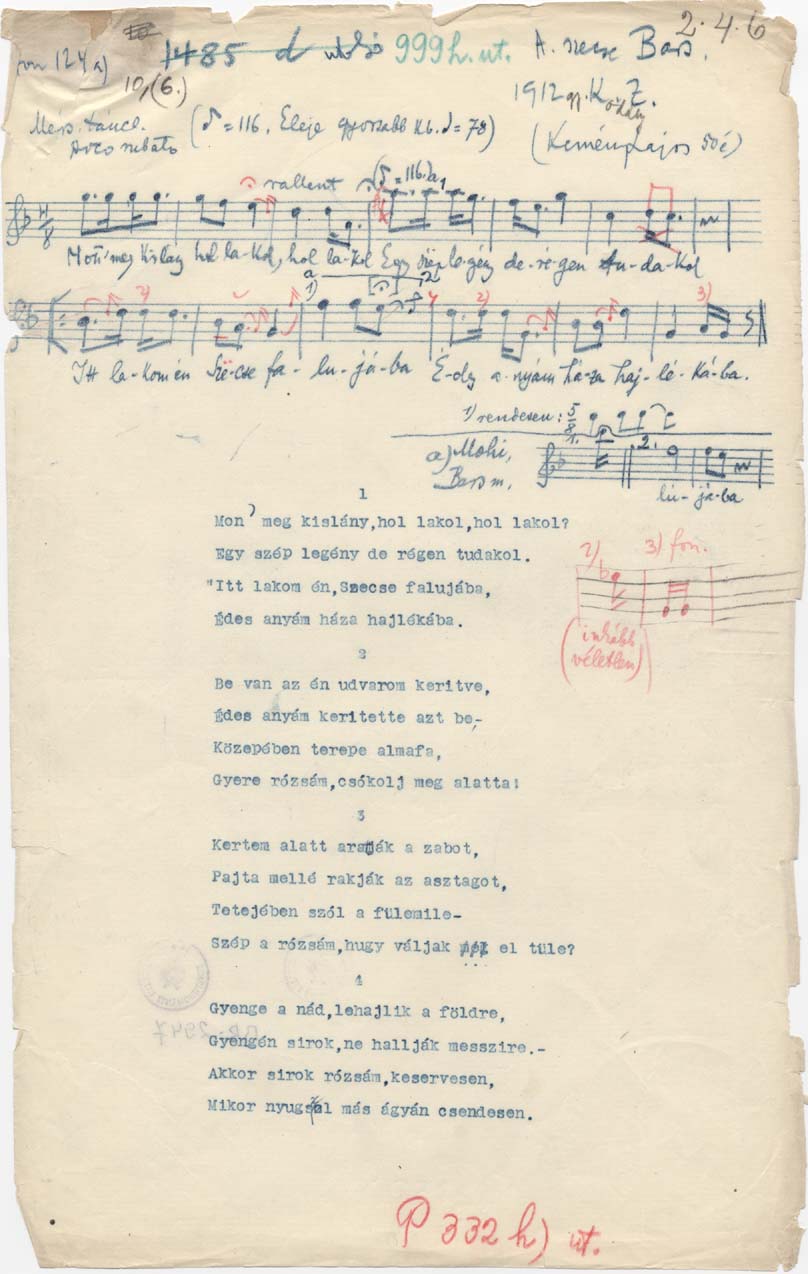 2.4.6
fon 124a)
1485 d utolsó 999h. ut. A. szecse Bars.
10,(6.)
1912 gy. K. Z.
(♪=116. Eleje gyorsabb kb. ♩=78)
(Kemény Lajos 50é)
rallent (♪=116.)
Mon' meg kislány hol la-kol, hol la-kol Egy szép le-gény de-ré-gen tu-da-kol
Itt la-kom én Szë-cse fa-lu-já-ba É-des a-nyám há-za haj-lé-ká-ba.
1) rendesen: 5/8
a) Mohi,
Bars m.
1. 2.
lu-já-ba
2) 3) fon.
(inkább
véletlen)
1
Mon' meg kislány,hol lakol,hol lakol?
Egy szép legény de régen tudakol.
"Itt lakom én,Szecse falujába,
Édes anyám háza hajlékába.
2
Be van az én udvarom keritve,
Édes anyám keritette azt be,-
Közepében terepe almafa,
Gyere rózsám,csókolj meg alatta!
3
Kertem alatt aratják a zabot,
Pajta mellé rakják az asztagot,
Tetejében szól a fülemile-
Szép a rózsám,hugy váljak el tüle?
4
Gyenge a nád,lehajlik a földre,
Gyengén sirok,ne hallják messzire.-
Akkor sirok rózsám,keservesen,
Mikor nyugszol más ágyán csendesen.
P 332 h) ut.